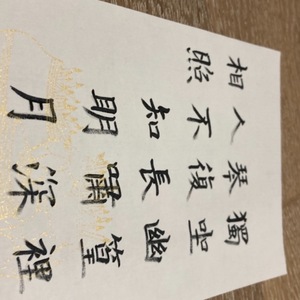 獨坐幽篁裡
琴復長嘯深
人不知明月
相照